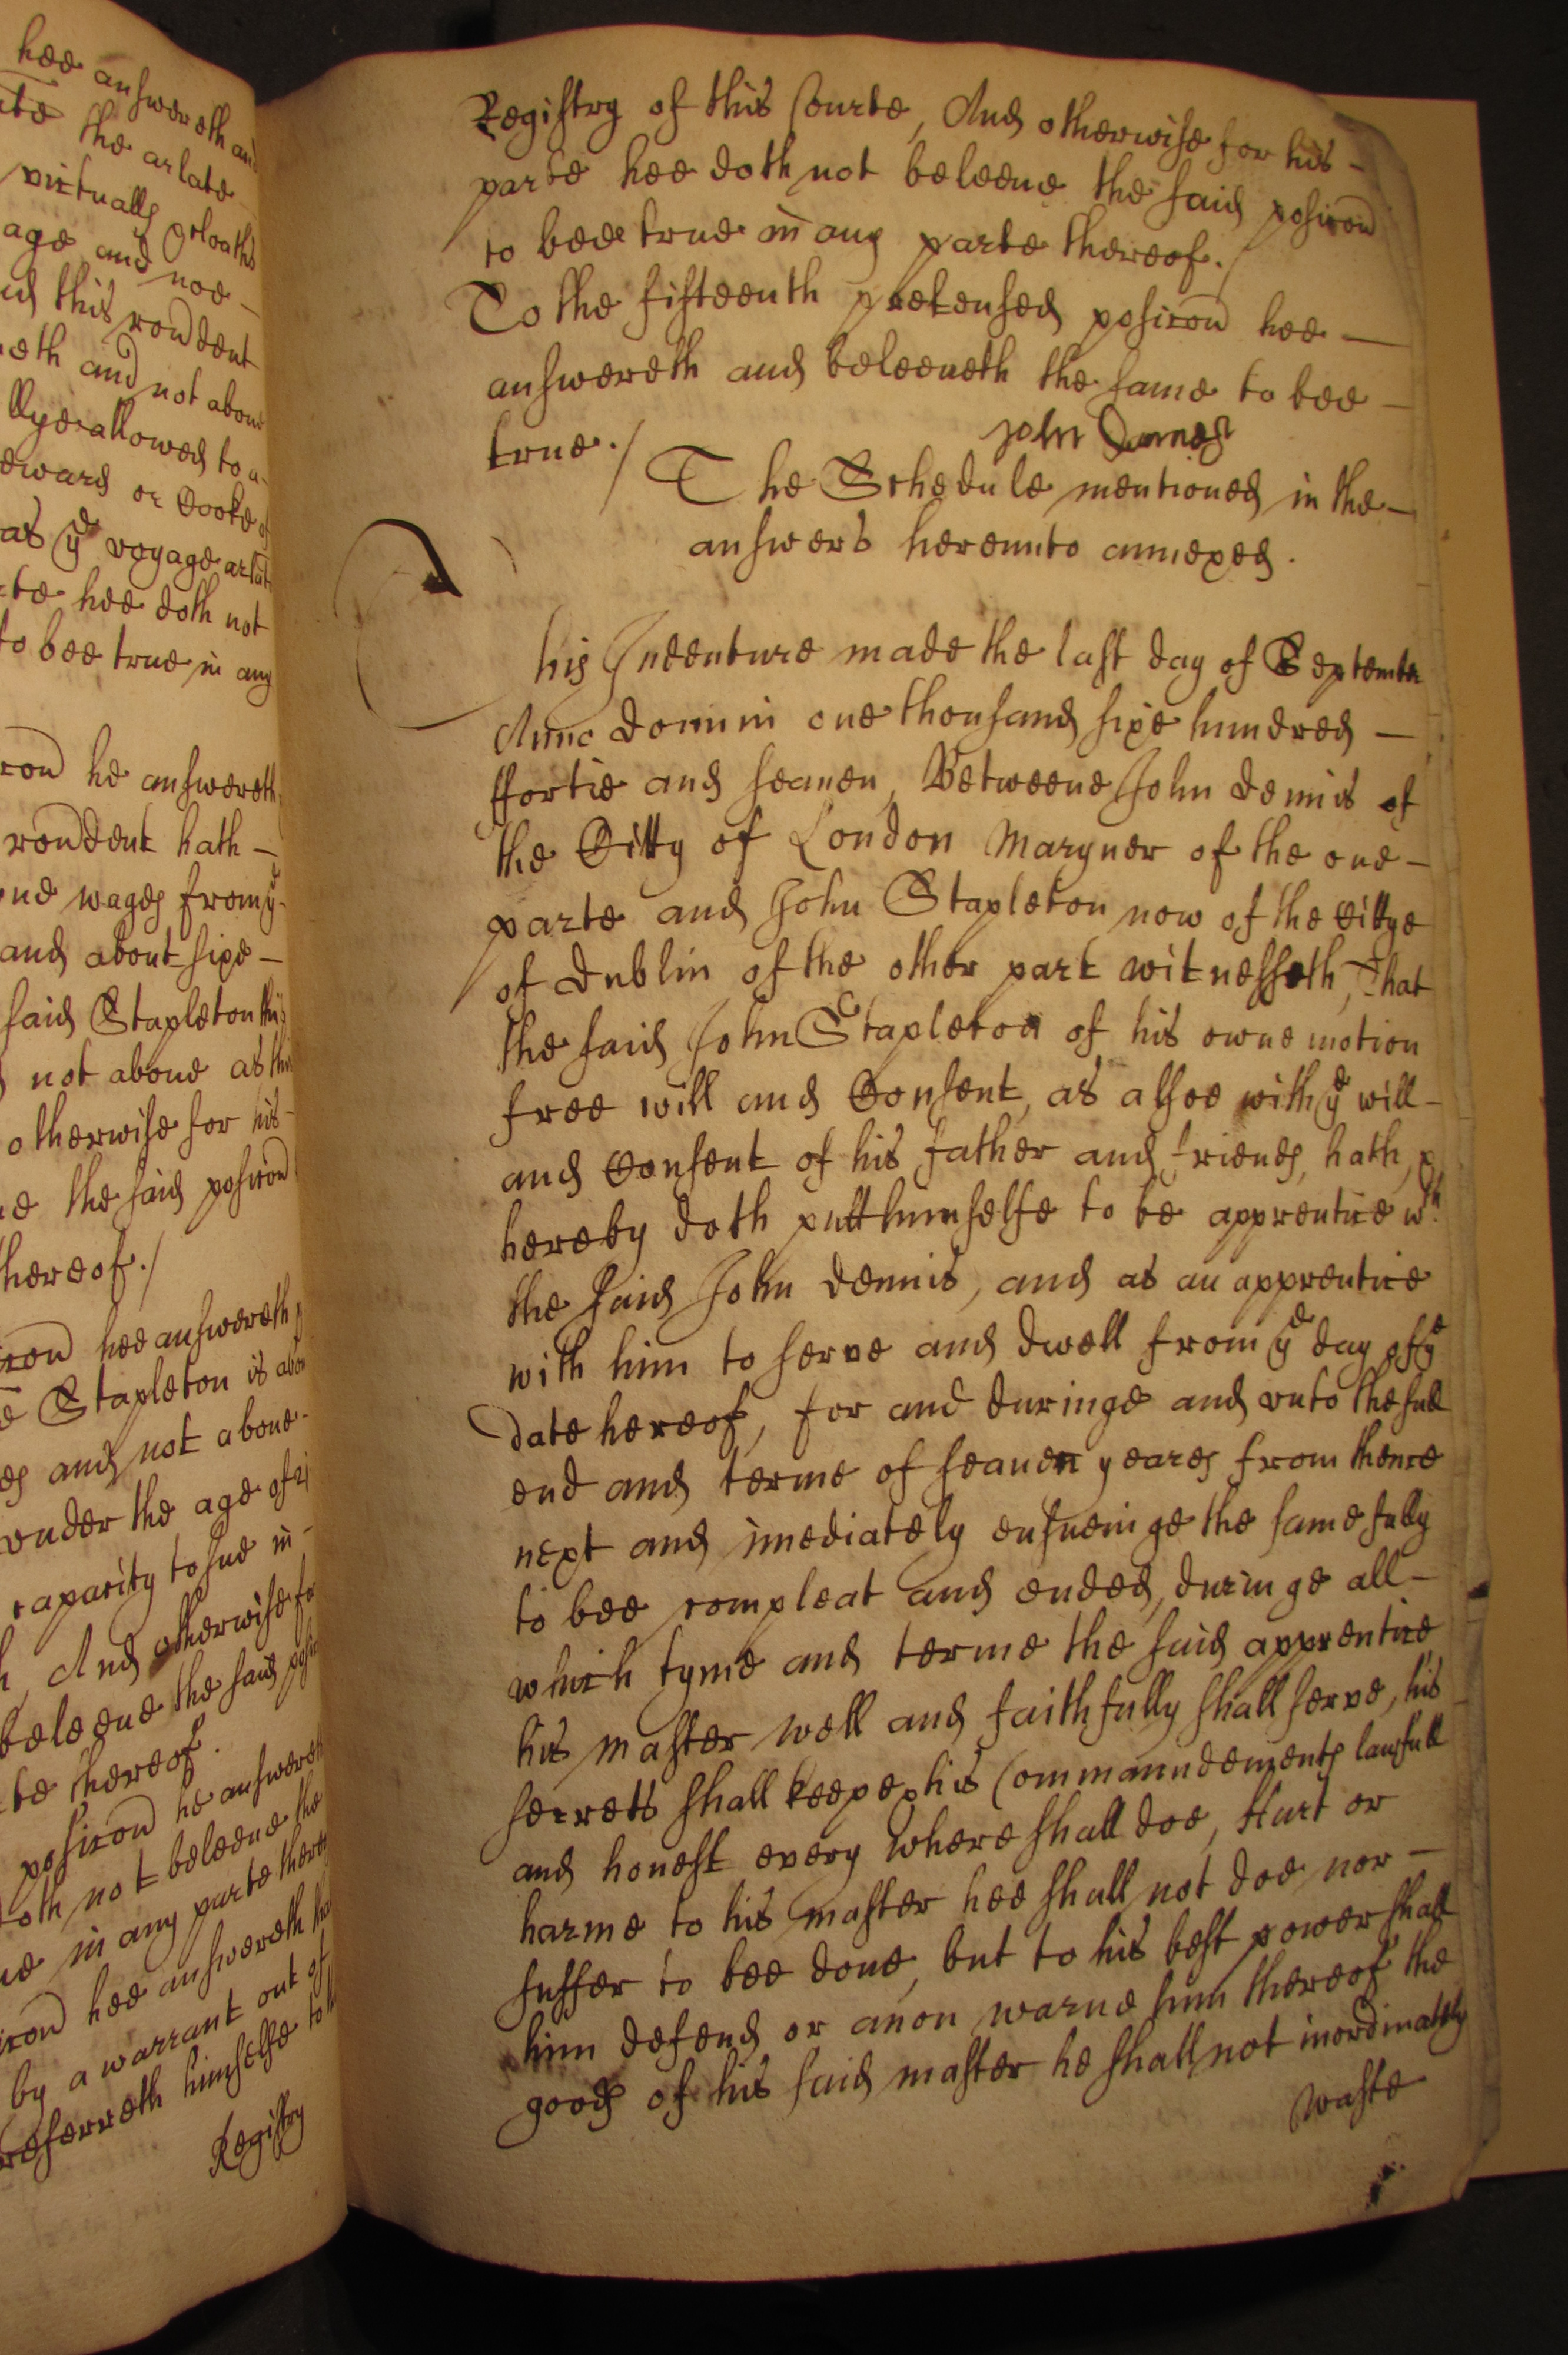 hee answereth and
the arlate
victualls & cloaths
age and noe
this rondent
eth and not aboue
allowed to a
eward or Cooke of
as ye voyage arlate
te hee doth not
to bee true in any
he answereth
rondent hath
wages from ye
and about sixe
said Stapleton this
not aboue as
otherwise for his
the said posicon
hereof./
hee answereth
Stapleton is
and not aboue
vnder the age of 21
capacity to sue in
And otherwise for
beleeue the said
te thereof.
posicon he answereth
oth not beleeue the
in any parte thereof
hee answereth
by a warrant out of
referreth himselfe to
Registry
Registry of this Courte, And otherwise for his
parte hee doth not beleeue the said posicon
to bee true in any parte thereof./
To the fifteenth pretensed posicon hee
answereth and beleeueth the same to bee
true./
John Dennes
The Schedule mentioned in the
answers hereunto annexed.
This Indenture made the last day of September
Anno Domini one thousand sixe hundred
ffortie and seauen, Betweene John Dennis of
the Citty of London Maryner of the one
parte and John Stapleton now of the Cittye
of Dublin of the other part witnesseth, That
the said John Stapleton of his owne motion
free will and Consent, as alsoe with ye will
and Consent of his father and friends, hath, &
hereby doth putt himselfe to be apprentice wth
the said John Dennis, and as an apprentice
with him to serve and dwell from ye day of ye
date hereof, for and duringe and vnto the full
end and terme of seauen yeares from thence
next and imediately ensueinge the same fully
to bee compleat and ended, duringe all
which tyme and terme the said apprentice
his master well and faithfully shall serve, his
secretts shall keepe, his Commanndements lawfull
and honest every where shall doe, Hurt or
harme to his master hee shall not doe nor
suffer to bee done, but to his best power shall
him defend or anon warne him thereof the
goods of his said master he shall not inordinately
waste